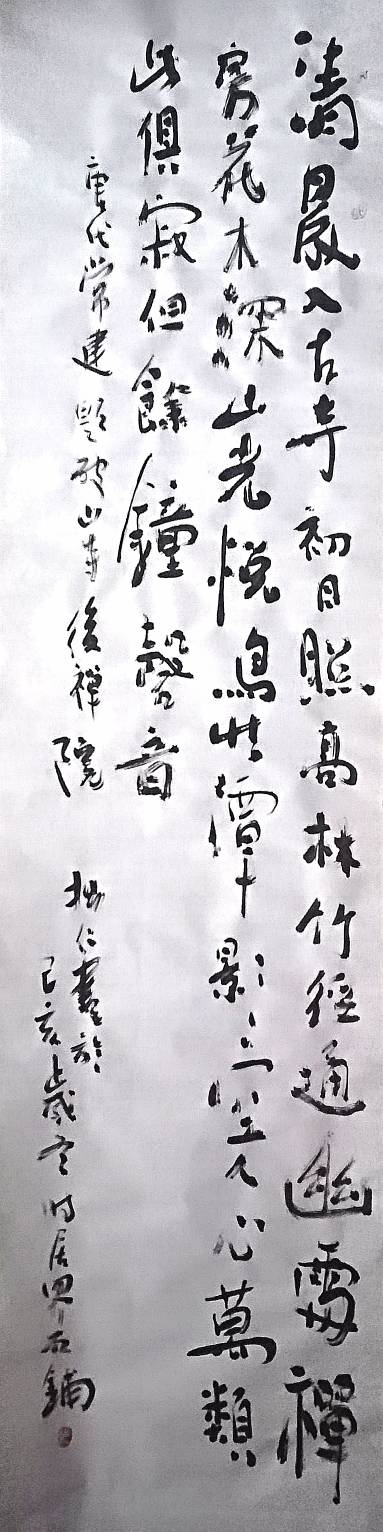 清晨入古寺初日照高林竹徑通幽處禪
房花木深山光悅鳥性潭影空人心萬類
此俱寂但餘鐘磬音
唐代常建題破山寺後禪院
拙仁書於
己亥歲冬時居界石鋪